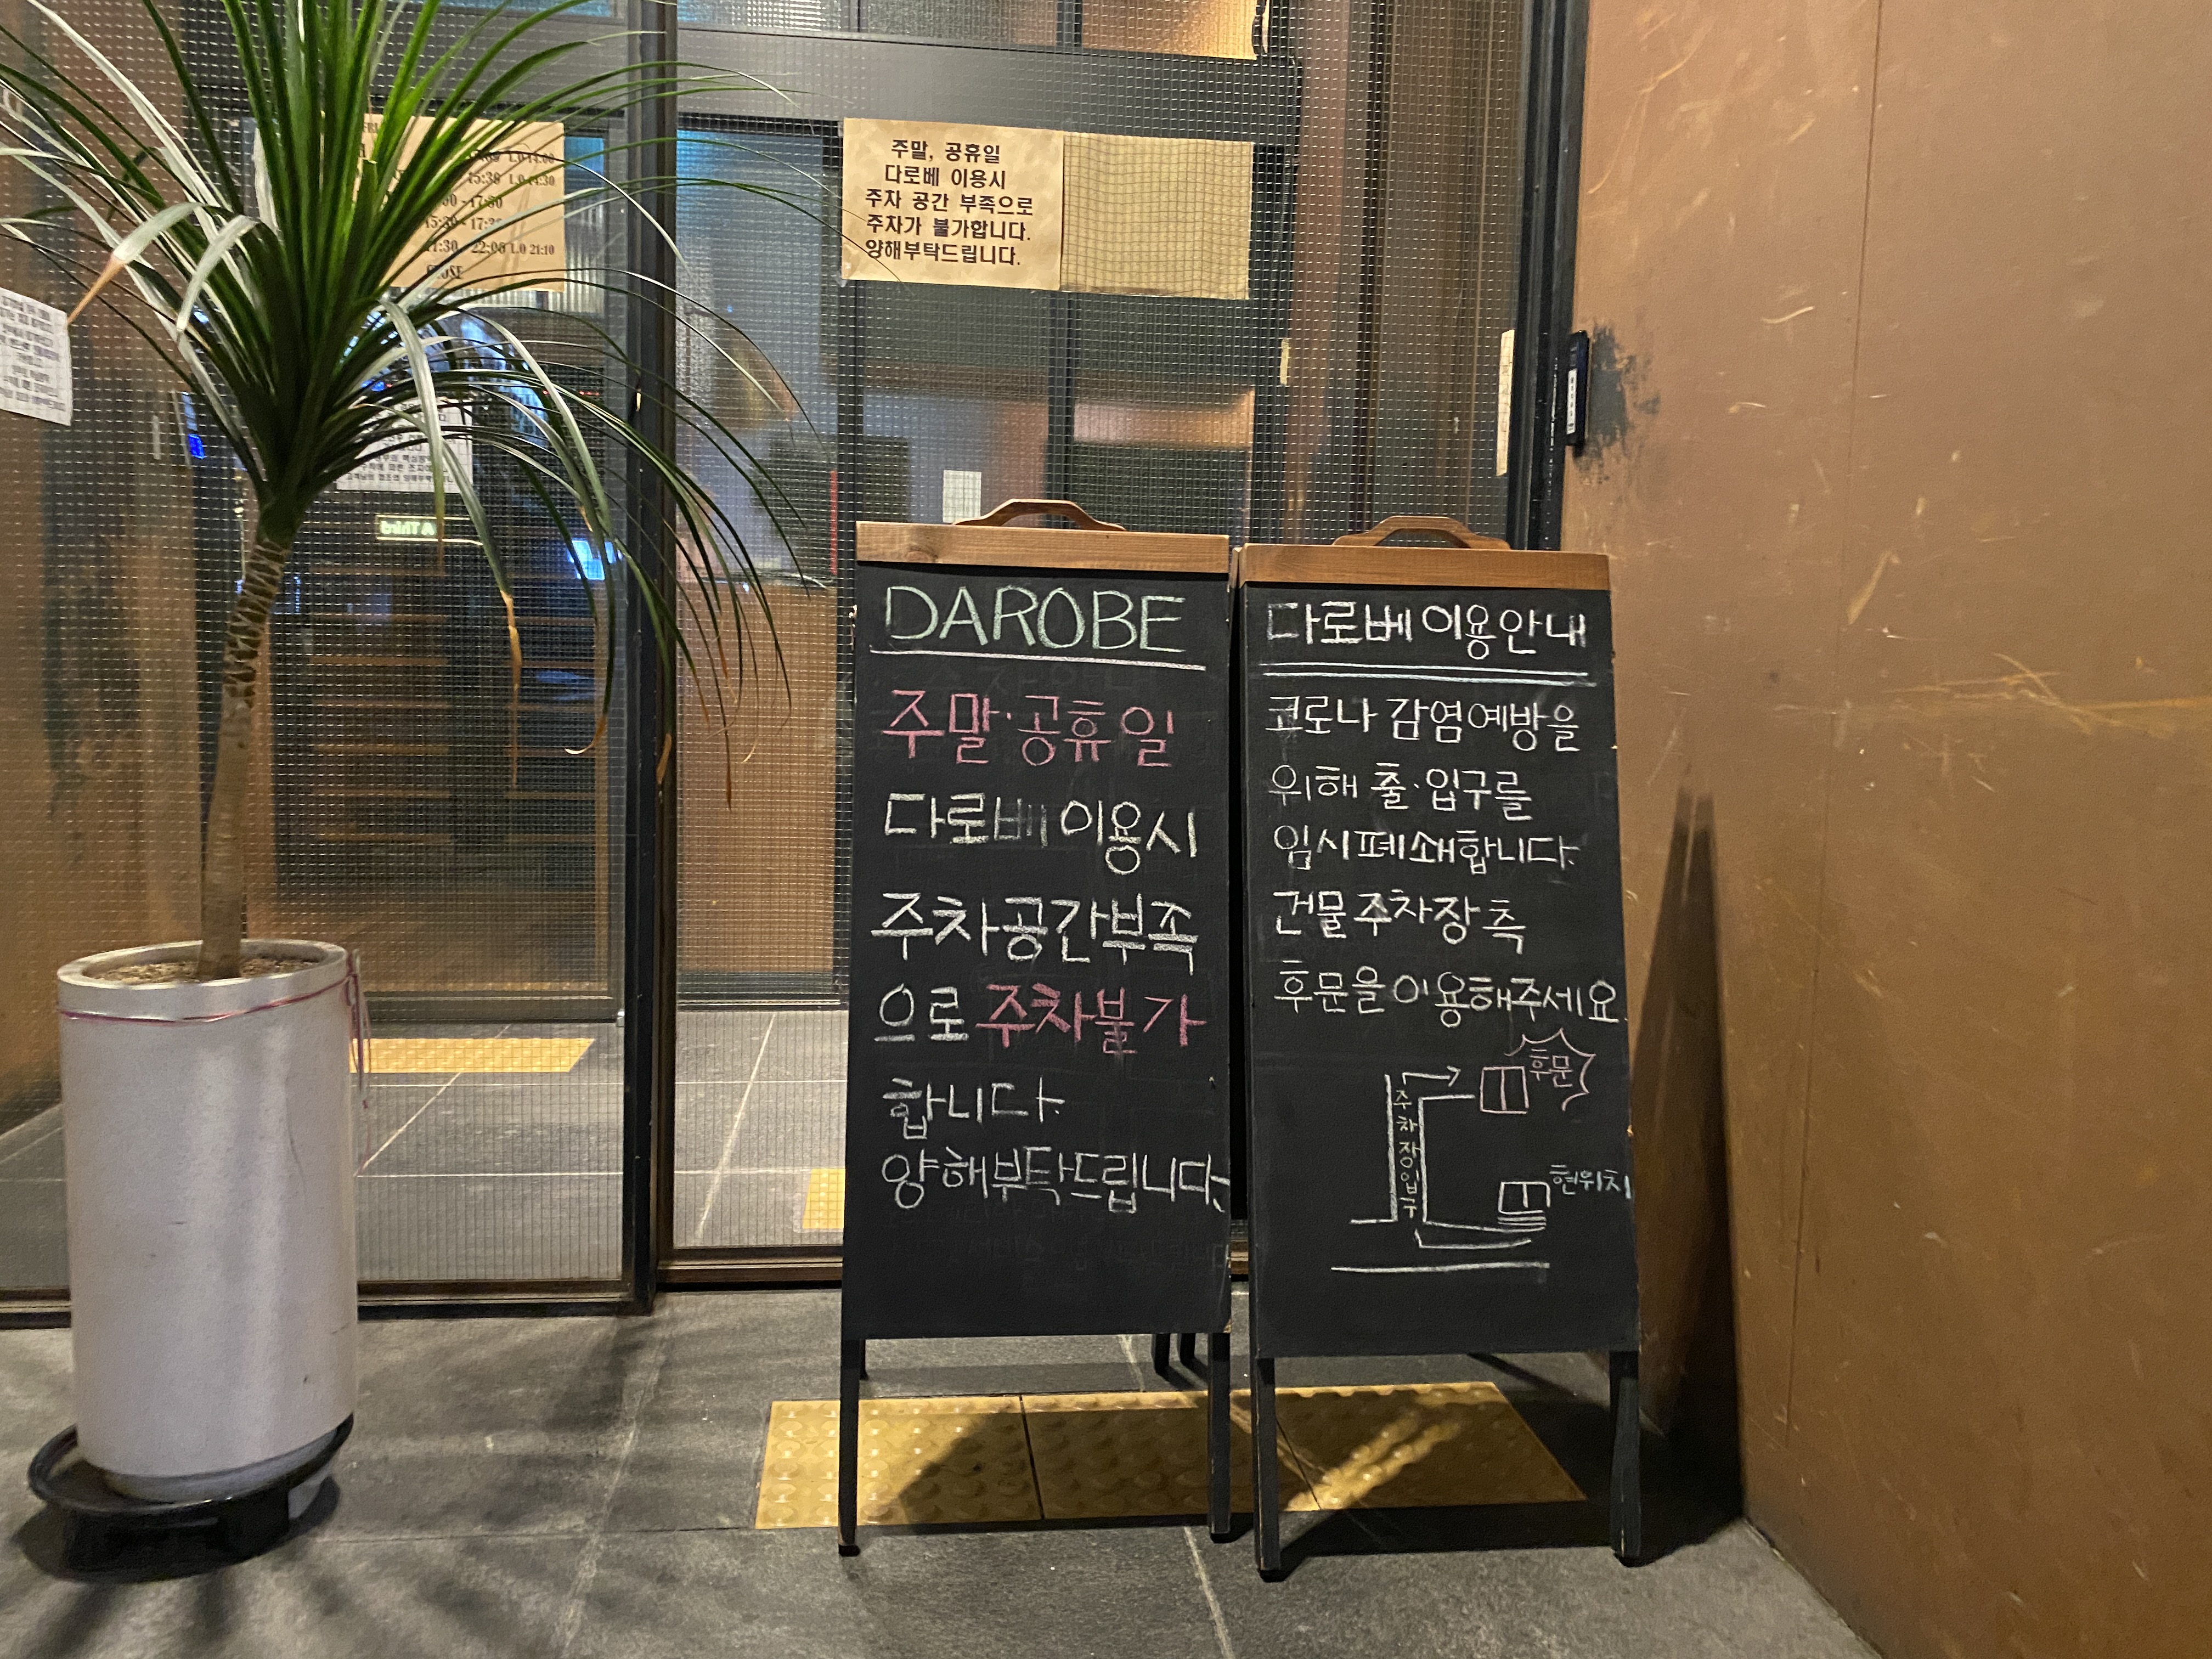 L.O 14:00
15:30 L.O 14:30
- 17:30
15:30 - 17:30
17:30 - 22:00 L.O 21:10
주말, 공휴일
다로베 이용시
주차 공간 부족으로
주차가 불가합니다.
양해부탁드립니다.
DAROBE
주말·공휴일
다로베 이용시
주차공간부족
으로 주차불가
합니다.
양해부탁드립니다.
다로베 이용안내
코로나 감염예방을
위해 출·입구를
임시폐쇄합니다.
건물 주차장 측
후문을 이용해주세요.
후문
주차장입구
현위치